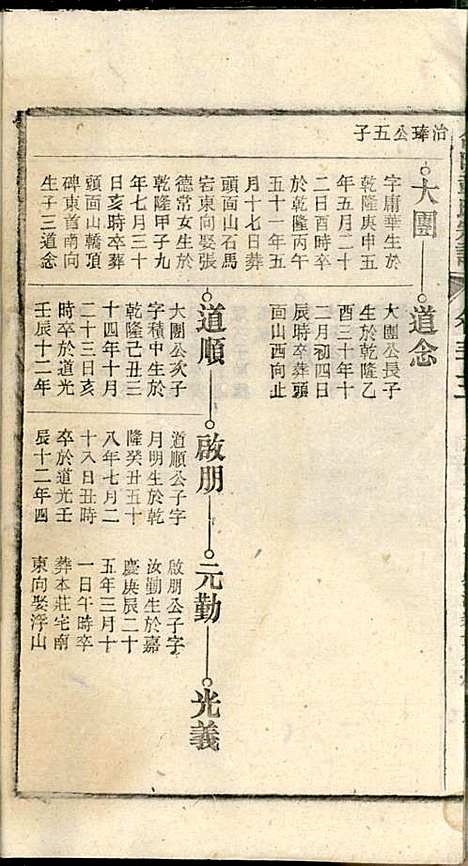 治瑋公五子
大團
字庸華生於
乾隆庚申五
年五月二十
二日酉時卒
於乾隆丙午
五十一年五
月十七日葬
頭面山石馬
宕東向娶張
德常女生於
乾隆甲子九
年七月三十
日亥時卒葬
頭面山轎頂
碑東首南向
生子三道念
道念
大團公長子
生於乾隆乙
酉三十年十
二月初四日
辰時卒葬頭
面山西向止
道順
大團公次子
字積中生於
乾隆己丑三
十四年十月
二十三日亥
時卒於道光
壬辰十二年
啟朋
道順公子字
月明生於乾
隆癸丑五十
八年七月二
十八日丑時
卒於道光壬
辰十二年四
元勤
啟朋公子字
汝勤生於嘉
慶庚辰二十
五年三月十
一日午時卒
葬本莊宅南
東向娶浮山
光義